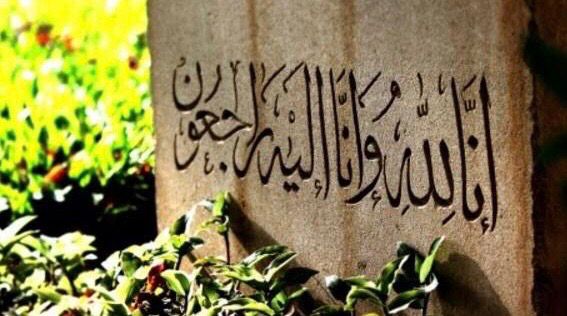 إنّا للّٰهِ وَإنّا إليْه راجعُون